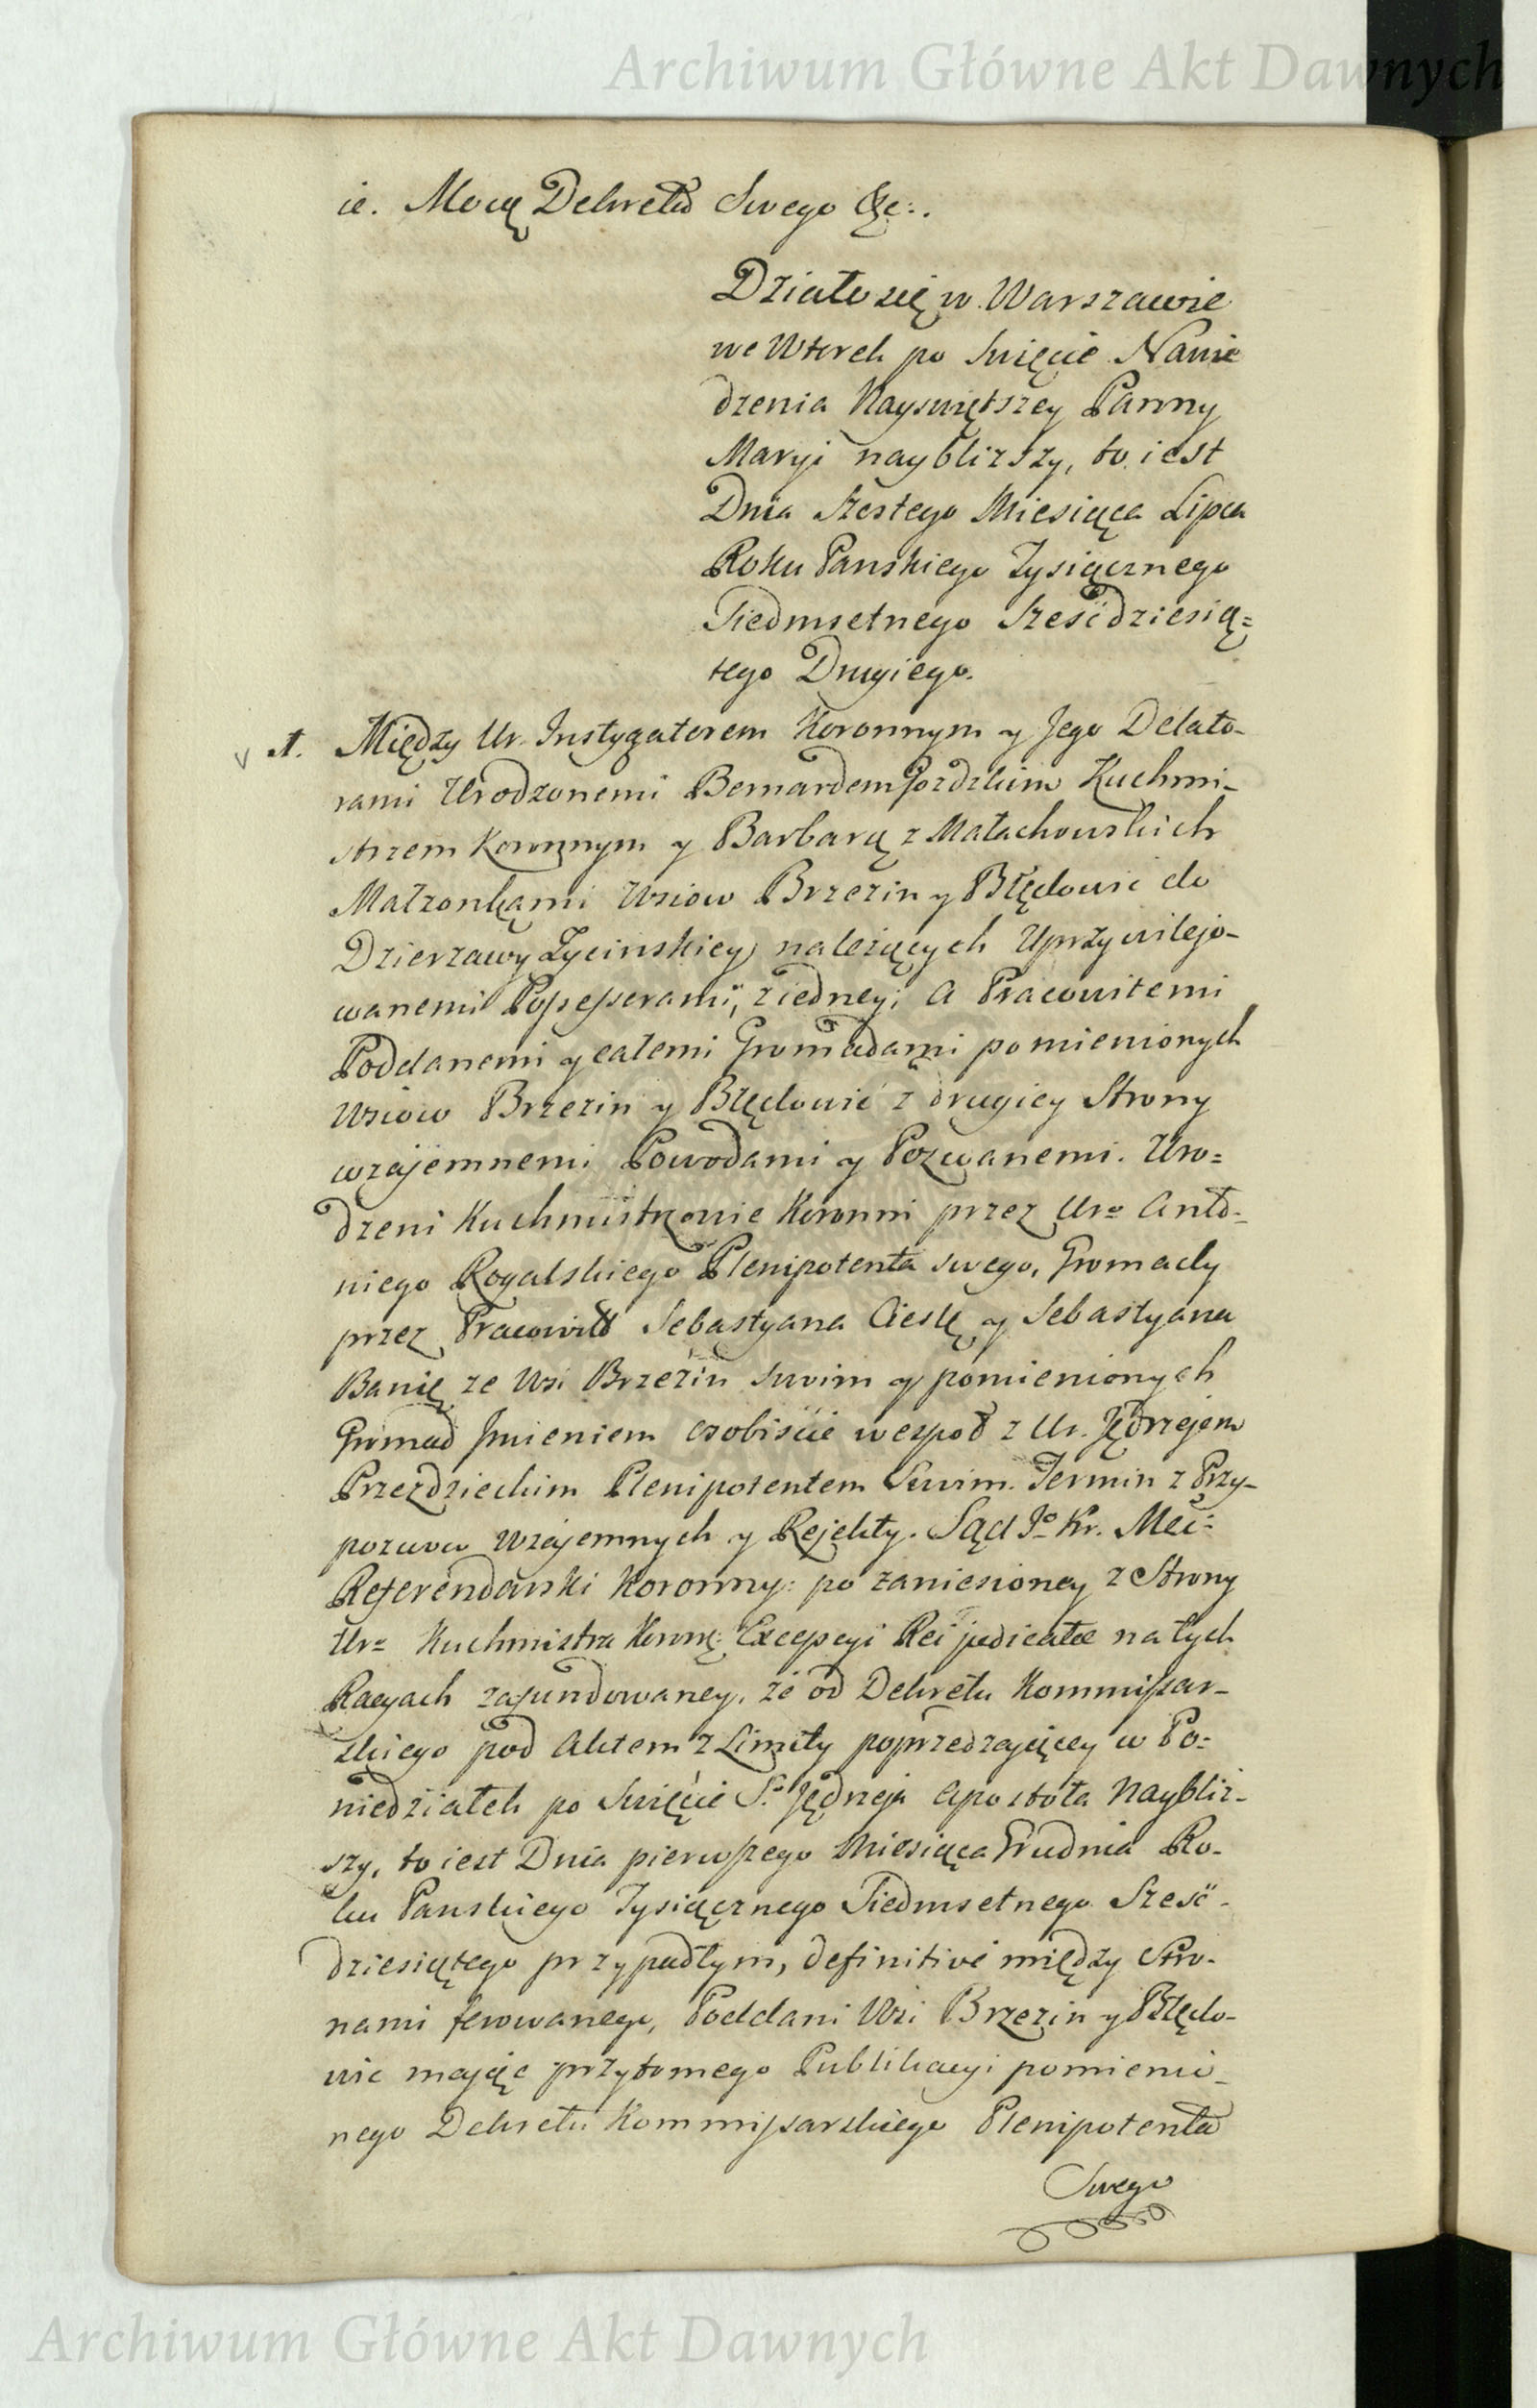 Archiwum Główne Akt Dawnych
ie. Mocą Dekretu Swego &c:.
Działo się w Warszawie
we Wtorek po Święcie Nawie
dzenia Nayswiętszey Panny
Maryi naybliższy, to iest
Dnia Szostego Miesiąca Lipca
Roku Panskiego Tysiącznego
Siedmsetnego Sześćdziesią=
tego Drugiego.
1. Między Ur. Instygatorem Koronnym y Jego Delato-
rami Urodzonemi Bernardem Gozdzkim Kuchmi-
strzem Koronnym y Barbarą z Małachowskich
Małzonkami Wsiow Brzezin y Błędowic do
Dzierzawy Zycinskiey należących Uprzywilejo-
wanemi Possessorami, z iedney; A Pracowitemi
Poddanemi y całemi Gromadami pomienionych
Wsiow Brzezin y Błędowic z drugiey Strony
wzajemnemi Powodami y Pozwanemi. Uro=
dzeni Kuchmistrzowie Koronni przez Uro Anto=
niego Rogalskiego Plenipotenta swego, Gromady
przez Pracowith Sebastyana Cieslę y Sebastyana
Banię ze Wsi Brzezin swim y pomienionych
Gromad Jmieniem osobiście wespoł z Ur. Jędrzejem
Przezdzieckim Plenipotentem Swim. Termin z Przy-
pozwow wzajemnych y Rejekty. Sąd Jo Kr. Mci=
Referendarski Koronny: po zaniesioney z Strony
Uro Kuchmistra Koronn: Excepcyi Rei judicatae na tych
Racyach zafundowaney, że od Dekretu Kommissar-
skiego pod Aktem z Limity poprzedzaiącey w Po=
niedziałek po Święcie So Jędrzeja Apostoła Naybliż-
szy, to iest Dnia pierwszego Miesiąca Grudnia Ro-
ku Panskiego Tysiącznego Siedmsetnego Sześć-
dziesiątego przypadłym, definitive między Stro-
nami ferowanego, Poddani Wsi Brzezin y Błędo-
wic mając przytomnego Publikacyi pomienio-
nego Dekretu Kommissarskiego Plenipotenta
Swego
Archiwum Główne Akt Dawnych